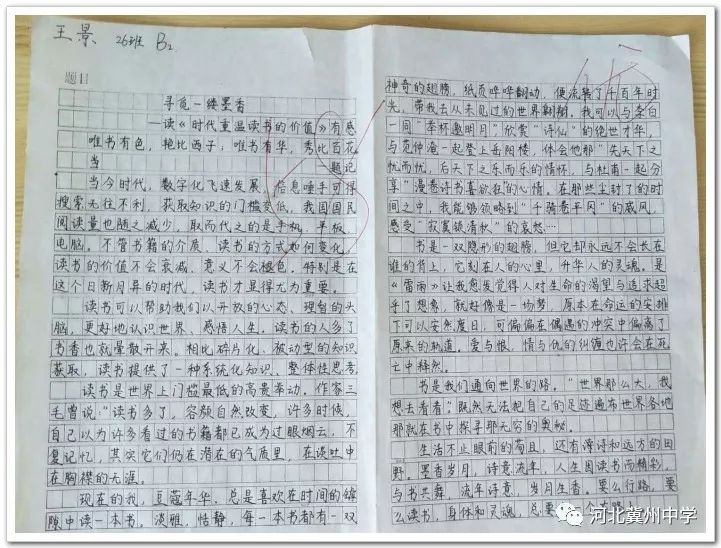 王景 26班 B2
题目
寻觅一缕墨香
—读《时代重温读书的价值》有感
唯书有色，艳比西子；唯书有华，秀比百花
—题记
当今时代，数字化飞速发展，信息唾手可得
搜索无往不利，获取知识的门槛变低，我国国民
阅读量也随之减少，取而代之的是手机、平板
电脑。不管书籍的介质、读书的方式如何变化，
读书的价值不会衰减、意义不会褪色。特别是在
这个日新月异的时代，读书才显得尤为重要。
读书可以帮助我们以开放的心态、理智的头
脑，更好地认识世界、感悟人生。读书的人多了
书香也就晕散开来。相比碎片化、被动型的知识
获取，读书提供了一种系统化知识、整体性思考
读书是世界上门槛最低的高贵举动。作家三
毛曾说：“读书多了，容颜自然改变，许多时候，
自己以为许多看过的书籍都已成为过眼烟云，不
复记忆，其实它们仍在潜在的气质里，在谈吐中
在胸襟的无涯。
现在的我，豆蔻年华，总是喜欢在时间的罅
隙中读一本书。淡雅，恬静，每一本书都有一双
神奇的翅膀，纸页哗哗翻动，便流转了千百年时
光，带我去从未见过的世界翱翔。我可以与李白
一同“举杯邀明月”欣赏“诗仙”的绝世才华，
与范仲淹一起登上岳阳楼，体会他那“先天下之
忧而忧，后天下之乐而乐的情怀，与杜甫一起分
享“漫卷诗书喜欲狂的心情。在那些尘封了的时
间之中，我能够领略到“千骑卷平冈”的威风，
感受“寂寞锁清秋”的哀愁⋯⋯
书是一双隐形的翅膀，但它却永远不会长在
谁的背上，它刻在人的心里，升华人的灵魂。是
《雷雨》让我愈发觉得人对生命的渴望与追求超
乎了想象，就好像是一场梦，原本在命运的安排
下可以安然度日，可偏偏在偶遇的冲突中偏离了
原来的轨道。爱与恨，情与仇的纠缠也许会在死
亡中释然。
书是我们通向世界的路。“世界那么大，我
想去看看”既然无法把自己的足迹遍布世界各地
那就在书中探寻那无穷的奥秘。
生活不止眼前的苟且，还有诗和远方的田
野。墨香岁月，诗意流年，人生因读书而精彩，
与书共舞，流年诗意，岁月生香。要么行路，要
么读书，身体和灵魂，总要
河北冀州中学